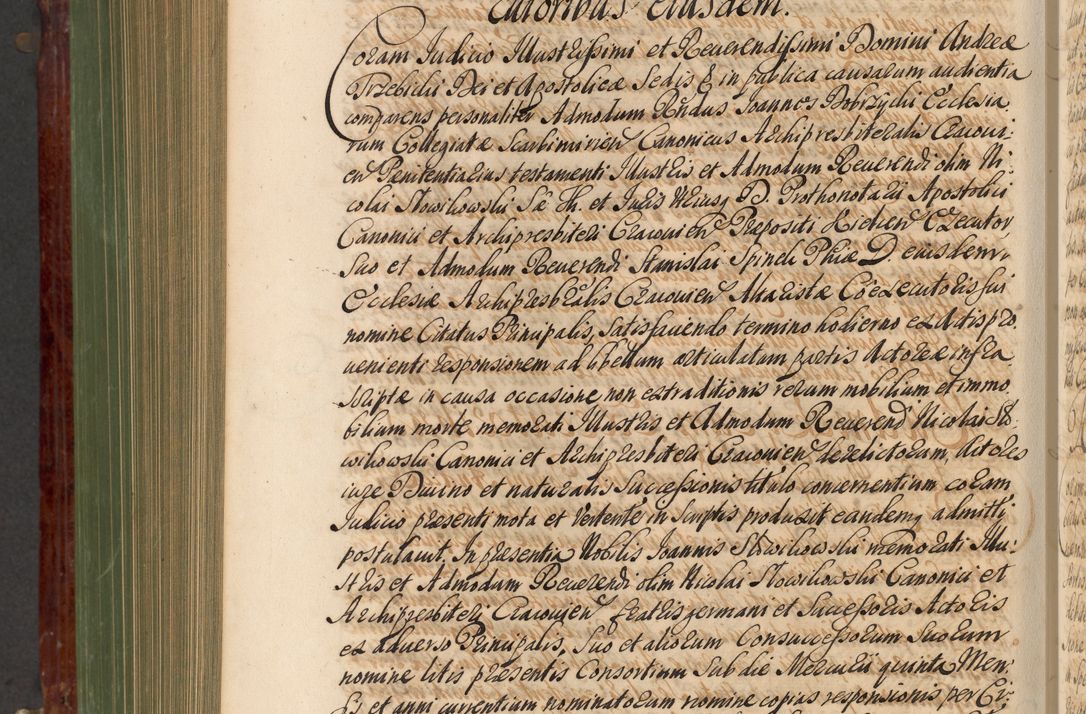 cutoribus eiusdem.
Coram Judicio Illustrissimi et Reuerendissimi Domini Andreæ
Trzebicki Dei et Apostolicæ Sedis & in publica causarum audientia
comparens personaliter Admodum Rndus Joannes Dobrzycki Ecclesia
rum Collegiatæ Scarbimirien Canonicus Archipresbiteralis Cracoui:
en Penitentiarius testamenti Illustris et Admodum Reuerendi olim Ni
colai Słowikowski S. Th. et Juris Vtriusq D. Prothonotarii Apostolici
Canonici et Archipresbiteri Cracouien Præpositi Kielcien Executor,
Suo et Admodum Reuerendi Stanislai Spinek Phiæ D eiusdem
Ecclesiæ Archipresbralis Cracouien Altaristæ Coexecutoris sui
nomine Citatus Principalis, satisfaciendo termino hodierno ex Actis pro
uenienti responsionem ad libellum articulatum partis Actoreæ infra
scriptæ in causa occasione non extraditionis rerum mobilium et immo
bilium morte memorati Illustris et Admodum Reuerend Nicolai Sło
wikowski Canonici et Archipresbiteri Cracouien derelictorum, Actores
iure Diuino et naturalis Successionis titulo concernentium coram
Judicio præsenti mota et Vertente in Scriptis produxit eandemq admitti
postulauit. In præsentia Nobilis Joannis Słowikowski memorati Illu:
stris et Admodum Reuerendi olim Nicolai Słowikowski Canonici et
Archipresbiteri Cracouien fratris germani et Successoris Actoris
ex aduerso Principalis, Suo et aliorum Consuccessorum Suorum
nomine litis præsentis Consortium Sub die Mercurii quinta Men
sis et anni currentium nominatorum nomine copias responsionis per Ci: